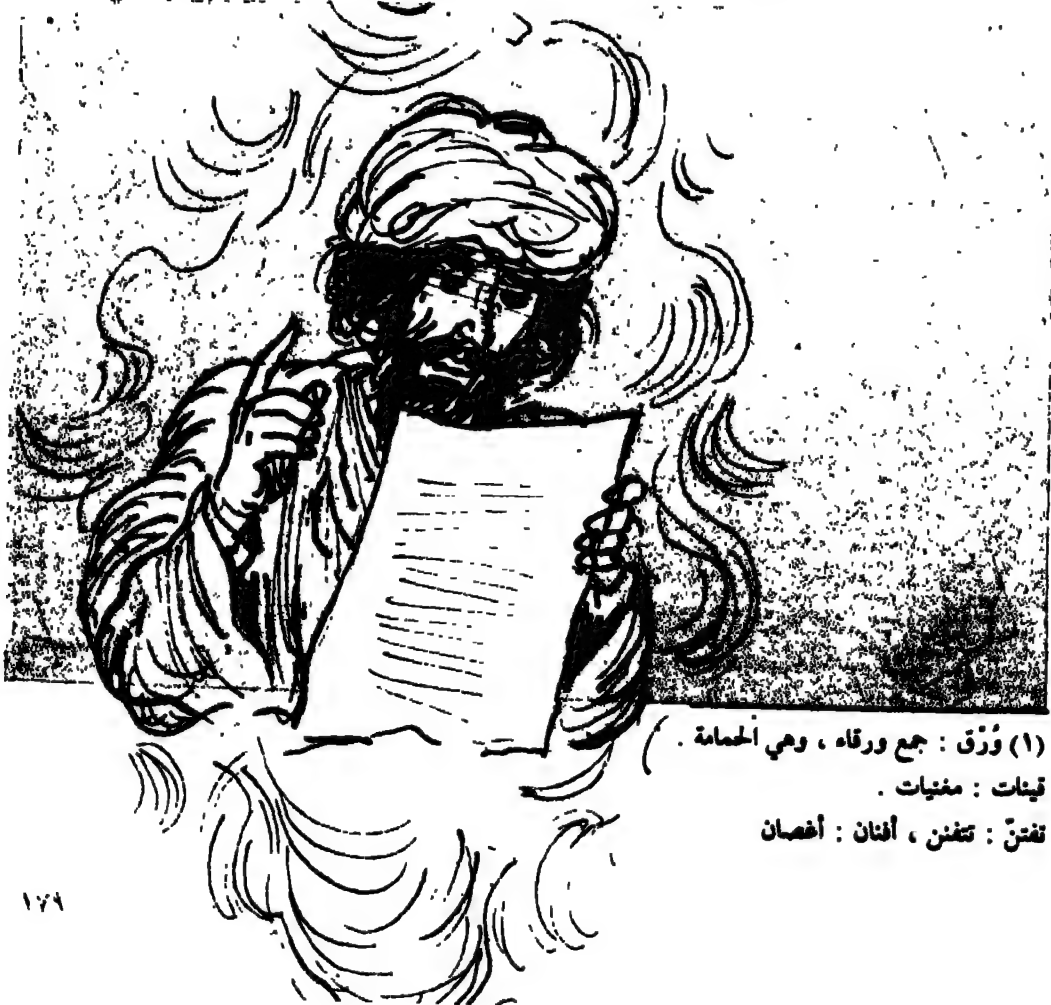 (١) وُرْق : جمع ورقاء ، وهي الحمامة .
قينات : مغنيات .
تفتنّ : تتفنن ، أفنان : أغصان
١٧٩